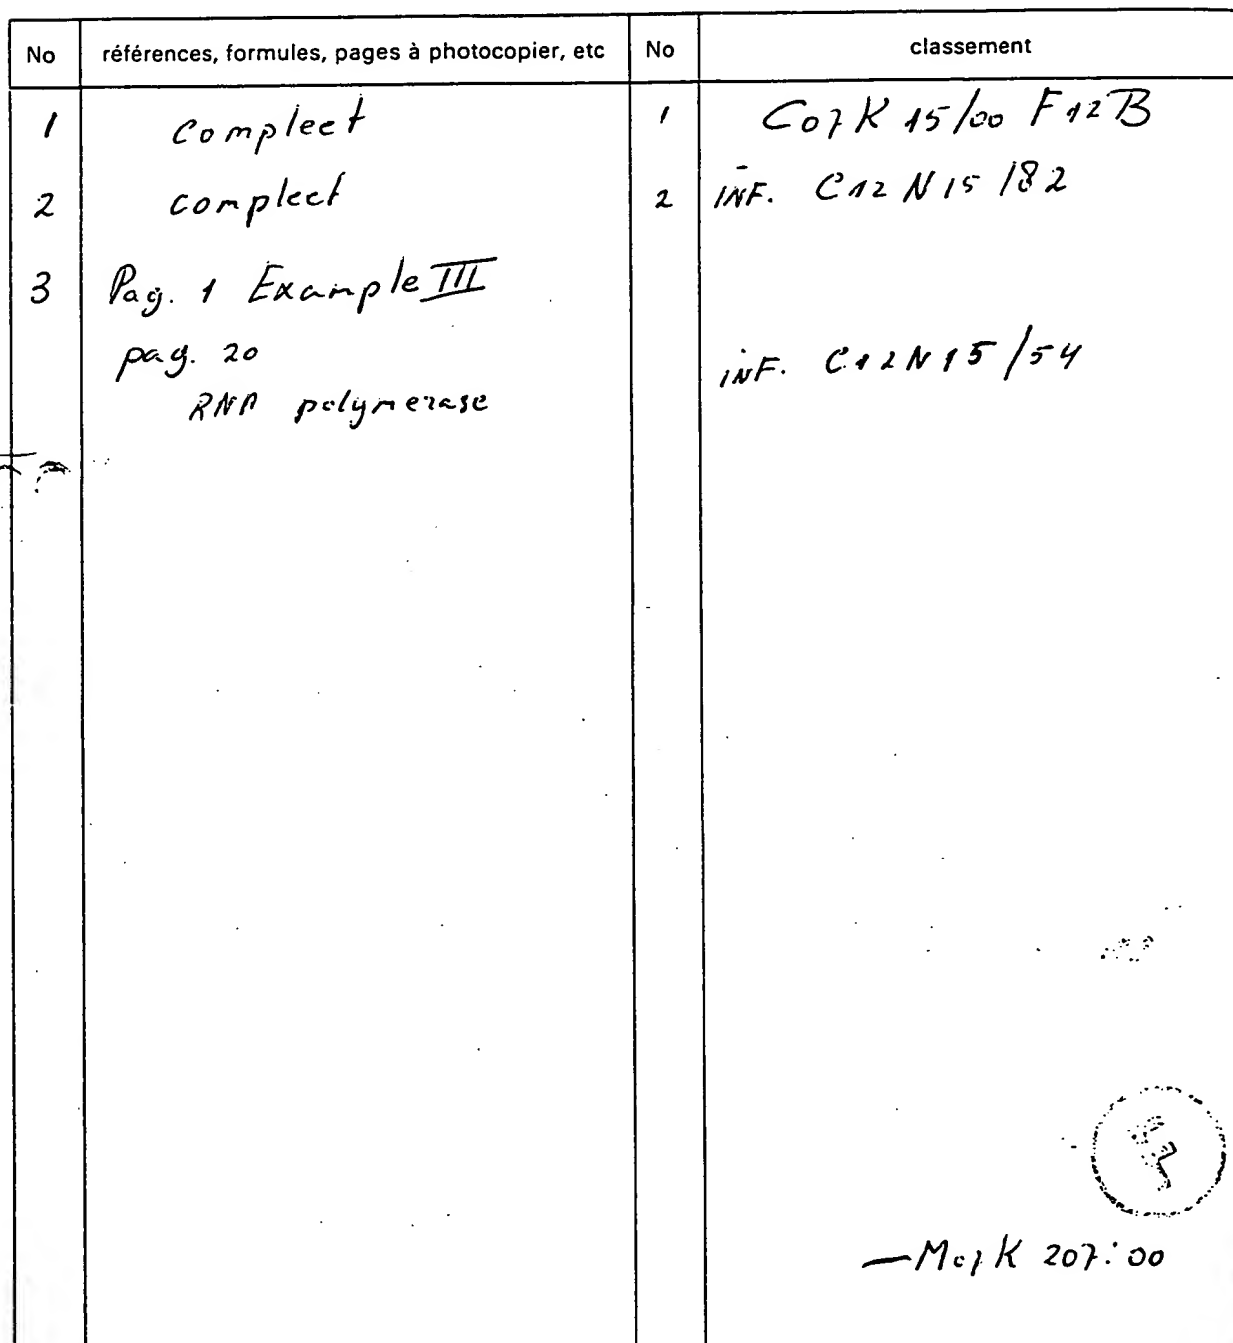 No références, formules, pages à photocopier, etc No classement
1 Compleet 1 C07K 15/00 F12B
2 compleet 2 INF. C12N 15/82
3 Pag. 1 Example III
pag. 20 INF. C12N15/54
RNA polymerase
—M07K 207:00